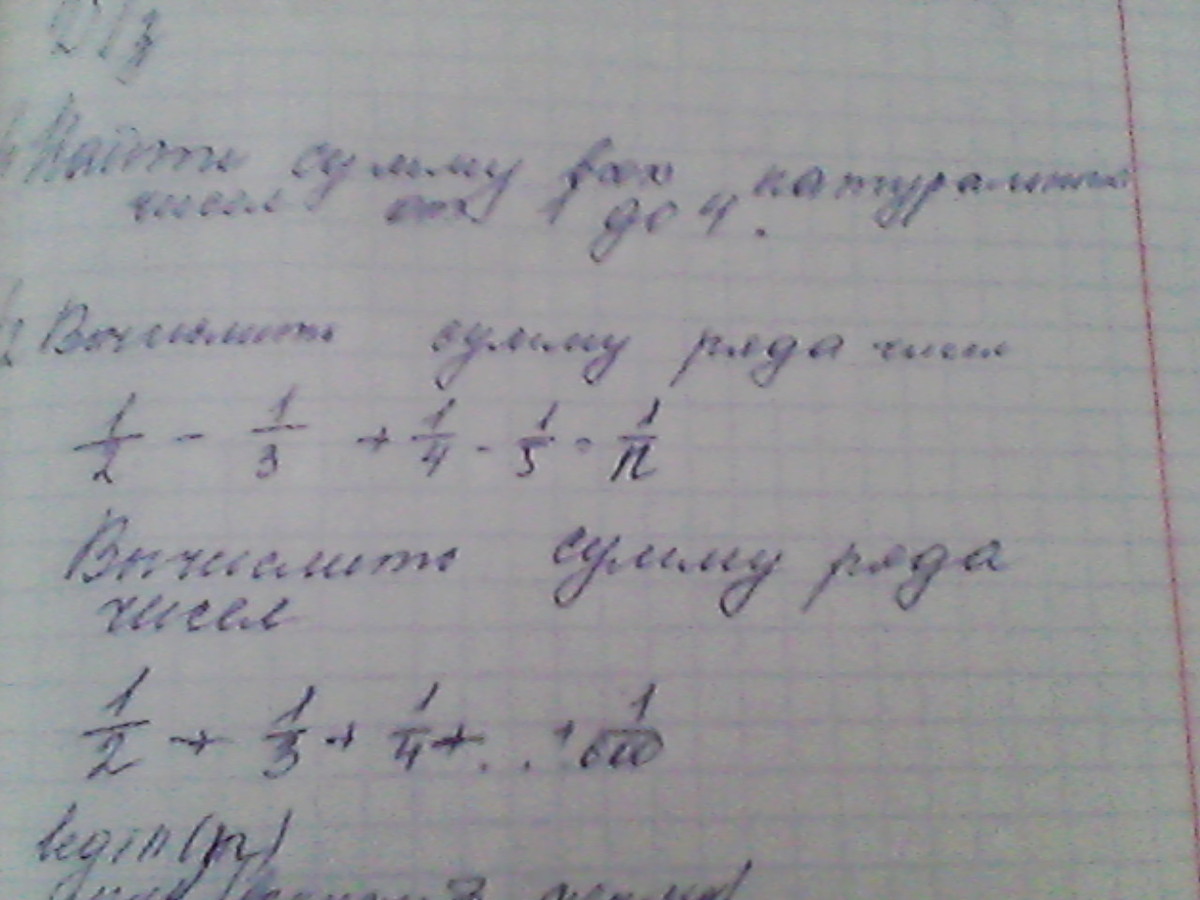 Д/з
Найти сумму всех натуральных
чисел от 1 до 4.
2 Вычислить сумму ряда чисел
1/2 - 1/3 + 1/4 - 1/5 - 1/n
Вычислить сумму ряда
чисел
1/2 + 1/3 + 1/4 + . . +
begin